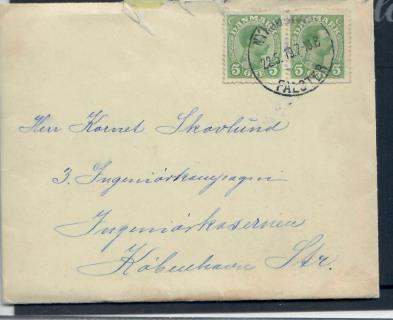 DANMARK DANMARK
5 ØRE 5 5 ØRE 5
22.5.19.7-10.8
FALSTER
Herr Kornet Skovlund
3. Ingeniörkompagni
Ingeniörkasernen
København Str.